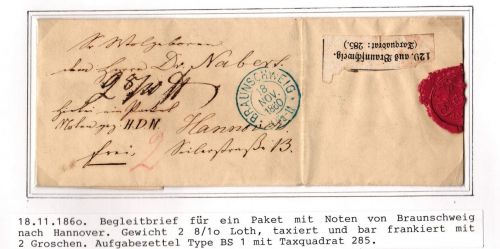 Sr Wolgeboren
dem Herrn Dr. Nabert.
2 8/10
Hierbei ein Paket
Noten gez H.D.N. Hannover.
frei, Seilerstraße 13.
2
BRAUNSCHWEIG
18
NOV.
1860
129. aus Braunschweig.
(Taxquadrat: 285.)
18.11.186o. Begleitbrief für ein Paket mit Noten von Braunschweig
nach Hannover. Gewicht 2 8/1o Loth, taxiert und bar frankiert mit
2 Groschen. Aufgabezettel Type BS 1 mit Taxquadrat 285.